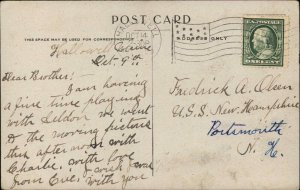 POST CARD
THIS SPACE MAY BE USED FOR CORRESPONDENCE
ADDRESS ONLY
OCT 14
Hallowell Maine
Oct. 9th
Dear Brother:
I am having
a fine time playing
with Seldon we went
to the moving pictures
this afternoon with
Charlie. with love
from Evie. wish I was
with you
Fredrick A. Olsen
U.S.S. New Hampshire
Portsmouth
N. H.
ONE CENT